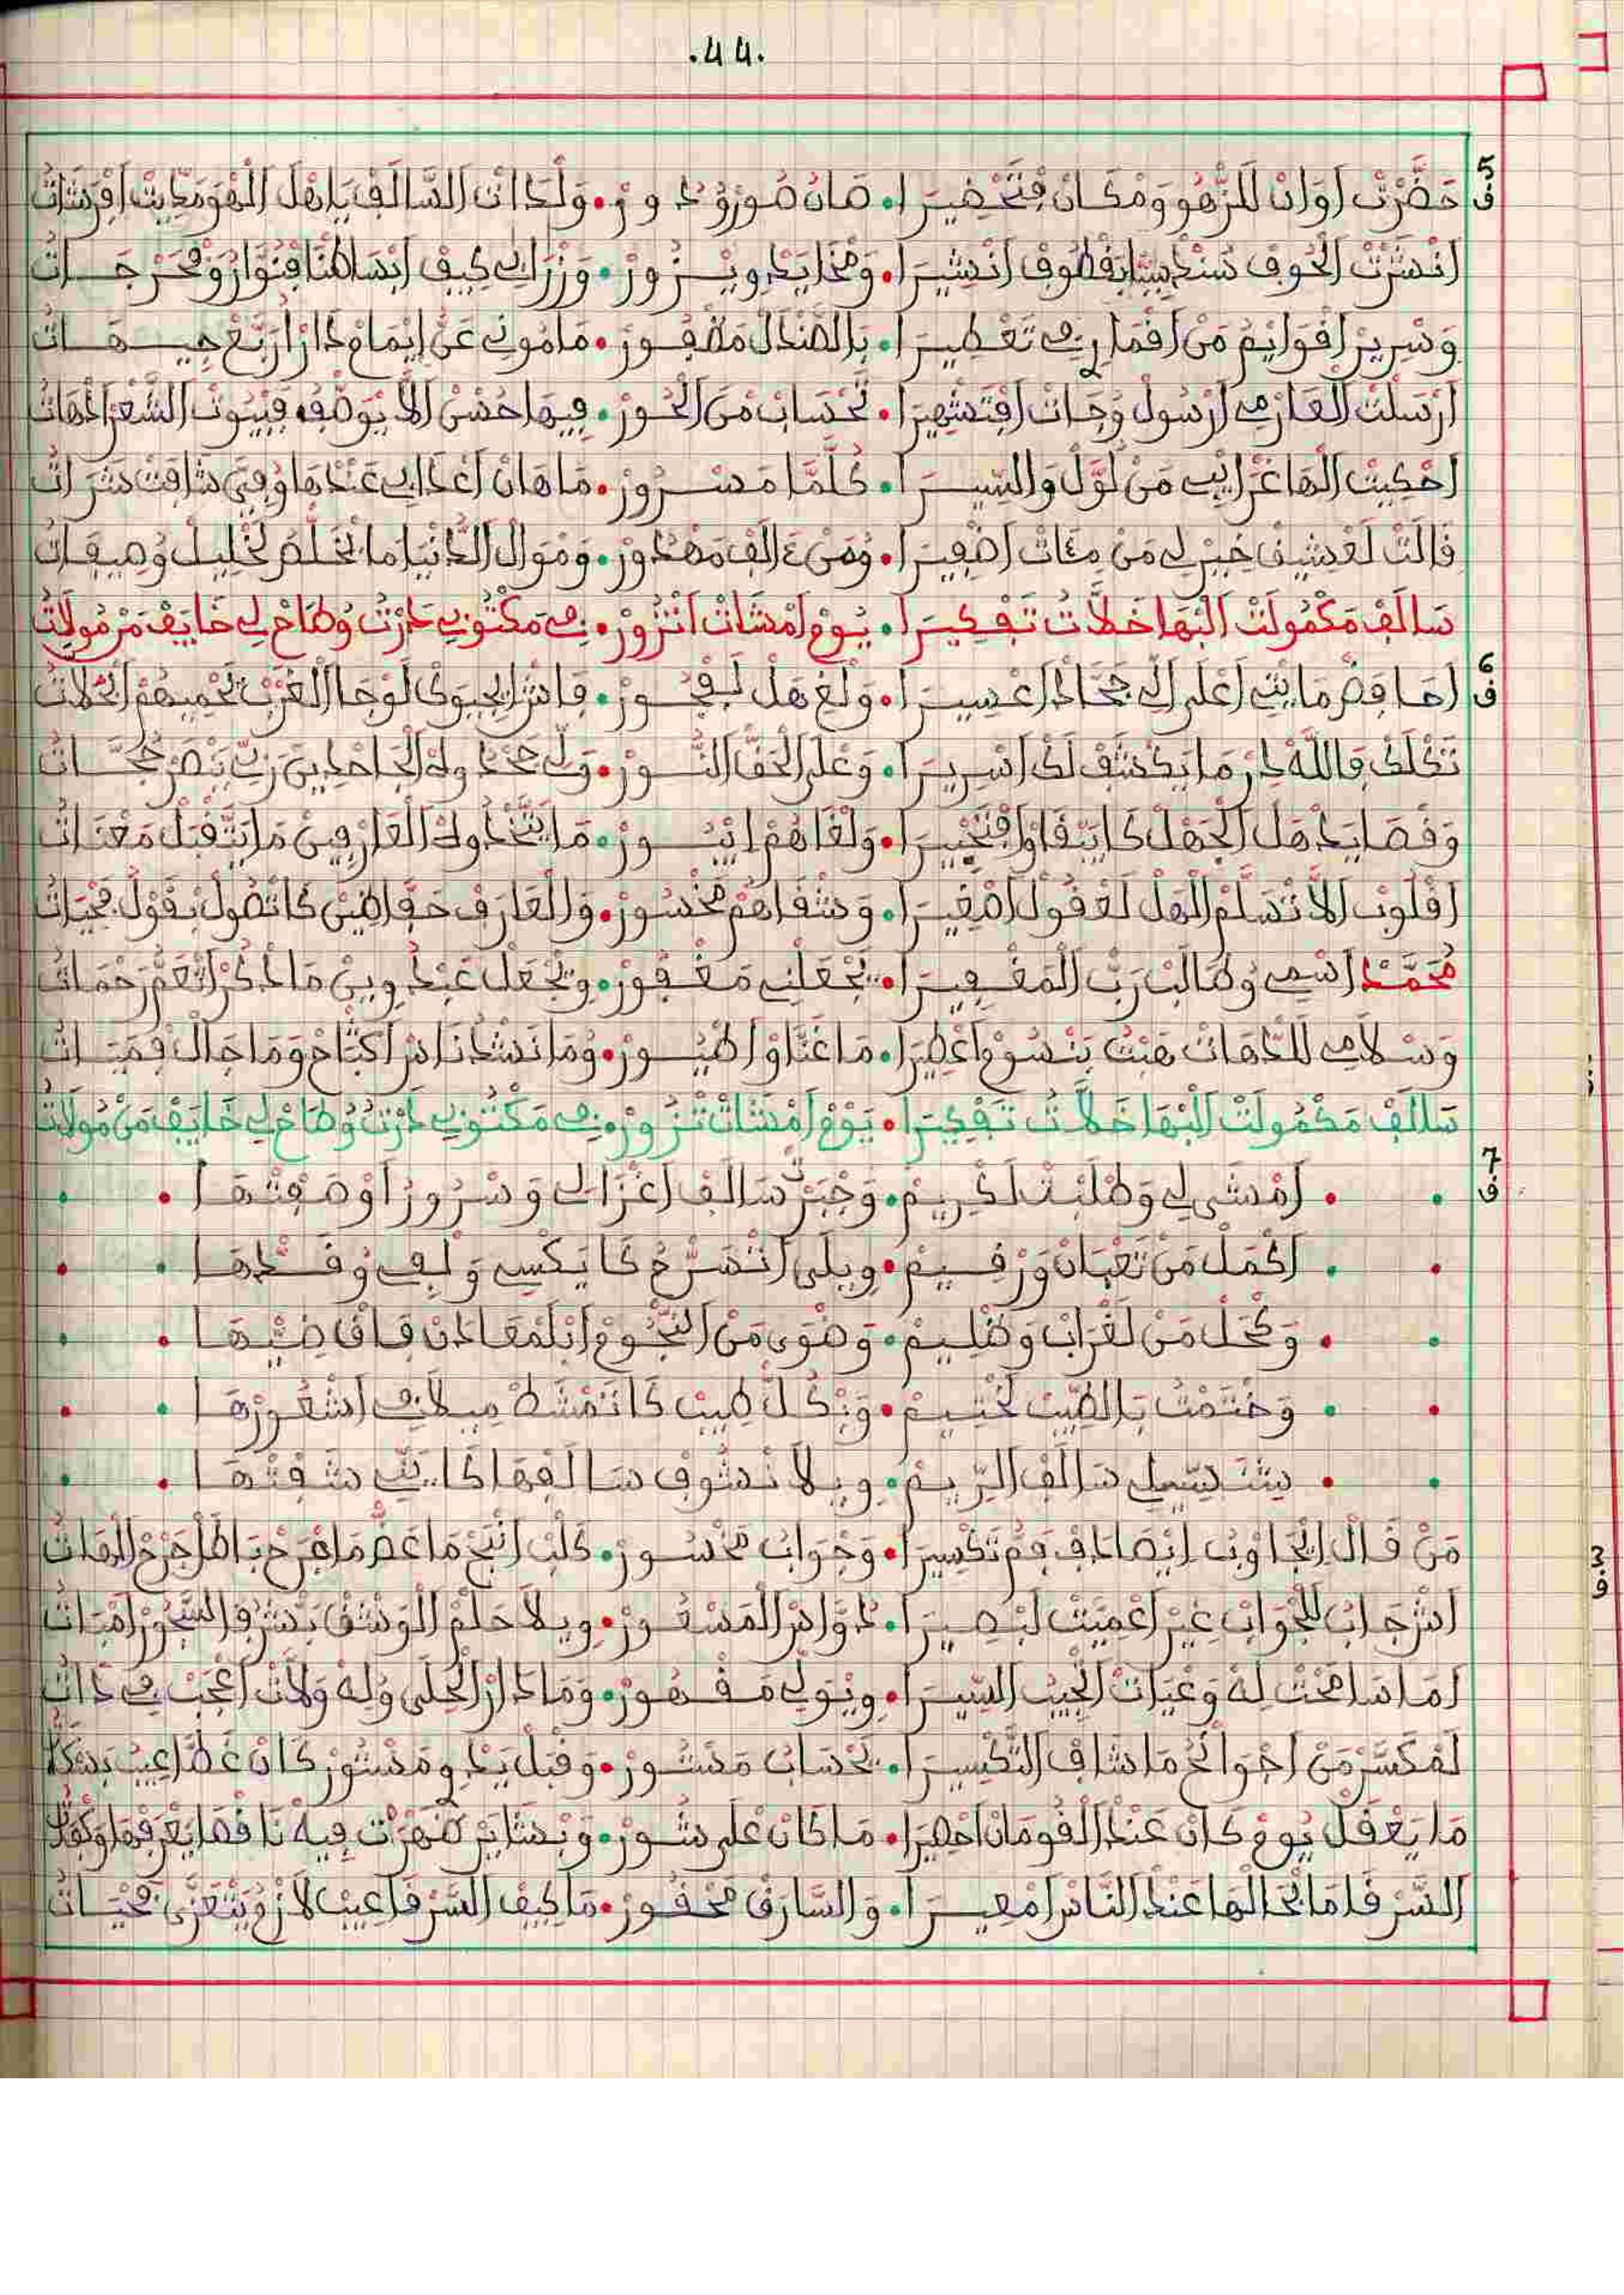 .44.
5 ف
حَضَّرْتْ اَوَانْ لَلزّْهُو وَمْكَانْ فْتَحْضِيرَا • صَانْ صُورْ وُدُورْ • وَلْدَاتْ السَّالَفْ يَاهْلْ الْهْوَ مَدِّيتْ اَفْرَشَاتُ
اَنْشَرْتْ الْحُوفْ سُنْدْسِيَّا بَقْطُوفْ اَنْشِيرَا • وَمْخَايَدْ وِيزُورْ • وَزْرَابِي كِيفْ اَبْسَاطْنَا فْنُوَّارُ وَمْحَرْجَاتُ
وَسْرِيرْ اَقْوَايْمُ مَنْ اَقْمَارِي تَعْطِيرَا • بَالصَّنْدَلْ مَظْفُورْ • مَامُونِي عَنْ اِيْمَامْ دَارْ اَرْبَعْ جِيهَاتُ
اَرْسَلْتْ الْعَارْمِي اَرْسُولْ وُجَاتْ اَفْتَشْهِيرَا • تَحْسَابْ مَنْ الْحُورْ • فِيهَا حُسْنْ اَلَّا يُوَصْفُه فَبْيُوتْ الشَّعْرْ اَدْهَاتُ
اَحْكِيتْ الْهَا غْرَايْبِي مَنْ لَوَّلْ وَالسِّيرَا • كُلَّمَا مَسْرُورْ • مَاهَانْ اَعْدَابِي عَنْدْهَا وُفِيَّ شَافَتْ شَرَاتُ
قَالَتْ لَعْشِيقْ خِيرْ لِي مَنْ مِئَاتْ اَضْفِيرَا • وُمَنْ ءَالَفْ مَهْدُورْ • وَمْوَالْ الدَّنْيَا مَا تَخْلَصْ لَخْلِيلْ وُصِيفَاتُ
سَالَفْ مَكْمُولَتْ الْبْهَا خَلَّاتُ تَفْكِيرَا • يُومْ اَمْشَاتْ اَتْزُورْ • نِي مَكْتُوبِي دَرْتُ وُطَاحْ لِي خَايَفْ مَنْ مُولَاتُ
6 ف
اَحَافَضْ مَايْتِي اَعْلَى الِّي جَحَّادْ اَعْسِيرَا • وَلْغَهْلْ لَفْجُورْ • قَاشْ اِيْجِيوَكْ لَوْجَا الْغَرْبْ تَحْمِيهُمْ الْحْمَلَاتُ
تَكْلَكْ فَاللَّهْ دِرْ مَا يَكْشَفْ لَكْ اَسْرِيرَا • وَعْلَى الْحَقّْ النُّورْ • وَلِّي جَحْدُوهْ الْجَاحْدِينْ رَبِّي يَنْصَرْ حُجَّاتُ
وَقْصَايَدْ هَلْ الْجَهْلْ كَا يَبْقَاوْ اَفْتَحْيِيرَا • وَلْغَاهُمْ اِيْبُورْ • مَا يَتَّخْدُوهْ الْعَارْفِينْ مَا يَتَّقْبَلْ مَعْنَاتُ
اَقْلُوبْ اَلَّا تْسَلَّمْ الْهَلْ لَعْقُولْ اَصْغِيرَا • وَشْفَاهُمْ مَخْسُورْ • وَالْعَارَفْ حَقّ اَطْنِينْ كَا تْصُولْ بْقَوْلْ مْحْيَاتُ
مُحَمَّدْ اَسْمِي وُطَالَبْ رَبّْ الْمَغْفِيرَا • يَجْعَلْنِي مَغْفُورْ • وِيَجْعَلْ عَبْدُ وِينْ مَا دْكَرْ اَتْعَمّْ رَحْمَاتُ
وَسْلَامِي لَلدّْهَاتْ هَبْتْ بَنْسُومْ اَعْطِيرَا • مَا غَنَّاوْ اَطْيُورْ • وُمَا نَشْدْ نَاسْ اَكْتَامْ وَمَا جَالْ فْمَبْيَاتُ
سَالَفْ مَكْمُولَتْ الْبْهَا خَلَّاتُ تَفْكِيرَا • يُومْ اَمْشَاتْ تْزُورْ • نِي مَكْتُوبِي دَرْتُ وُطَاحْ لِي خَايَفْ مَنْ مُولَاتُ
7 ف
اَمْشَى لِي وَطْلَبْتْ لَكْرِيمْ • وَجْبَرْتْ سَالَفْ اَغْزَالِي وَسْرُورْ اَوْصَفْتْهَا
اَكْحَلْ مَنْ تَعْبَانْ وَرْقِيمْ • وِيلَى اَتْسَرّْحُ كَا يَكْسِي وَلْفِي وُقَدّْهَا
وَكْحَلْ مَنْ لَغْرَابْ وَظْلِيمْ • وَضْوَى مَنْ النّْجُومْ اَبْلَمْعَادَنْ فَاقْ ضِيّْهَا
وَخْتَمْتُ بَالطِّيبْ لَخْتِيمْ • وَبْكُلّْ طِيبْ كَا تَمْشَطْ مِيلَافِي اَشْعُورْهَا
سَالَفْ الرِّيمْ • وِيلَا نْشُوفْ سَالَفْهَا كَايَنِّي شَفْتْهَا
مَنْ قَالْ اِيْجَاوْبْ اِيْصَادَفْ فَمّْ تَكْسِيرَا • وَجْوَابُ مَخْسُورْ • كَلْبْ اَنْبَحْ مَا عَضّْ مَا جْرَحْ بَاطَلْ جَرْحْ الدّْهَاتُ
اَشْ جَابْ لَلْجْوَابْ غِيرْ اَعْمِيَتْ لَبْصِيرَا • دُوَّاسْ الْمَسْعُورْ • وِيلَا حَلَمْ الْوَشْقْ
اَمَا سَامَحْتْ لَهْ وَعْيَاتْ الْجِيبْ السِّيرَا • وِيْوَلِّي مَقْهُورْ • وَمَا دَارْ الْحَلَى وُلَهْ وَلَاتْ اَعْجَبْ فِي دَاتُ
لَمْكَسَّرْ مَنْ اَجْوَانْحُ مَا شَافْ التَّكْسِيرَا • تَحْسَابُ مَسْتُورْ • وَقْبَلْ يَبْدُو مَسْتُورْ كَانْ غَطَّا عِيبُ
مَا يَعْقَلْ يُومْ كَانْ عَنْدْ الْقُومَانْ اَحْصِيرَا • مَا كَانْ عْلَى شُورْ • وَبْشَايَرْ ضَهْرَتْ فِيهْ
السَّرْقَا مَا بْحَالْهَا عَنْدْ النَّاسْ اَمْعِيرَا • وَالسَّارَقْ مَحْقُورْ • مَا كِيفْ السَّرْقَا عِيبْ لَازَمْ يَتْعَزَّى مْحْيَاتُ
3 ف